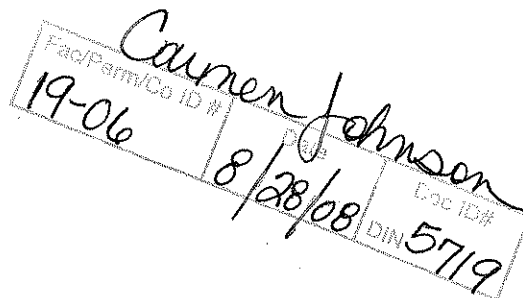 Carmen Johnson
Fac/Perm/Co ID # Date Doc ID#
19-06 8/28/08 DIN 5719